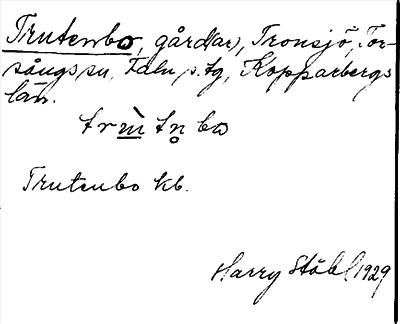 Trutenbo, gård(ar), Tronsjö, Tor-
sångs sn, Falu s. tg, Kopparbergs
län.
Trutenbo kb.
Harry Ståhl 1929